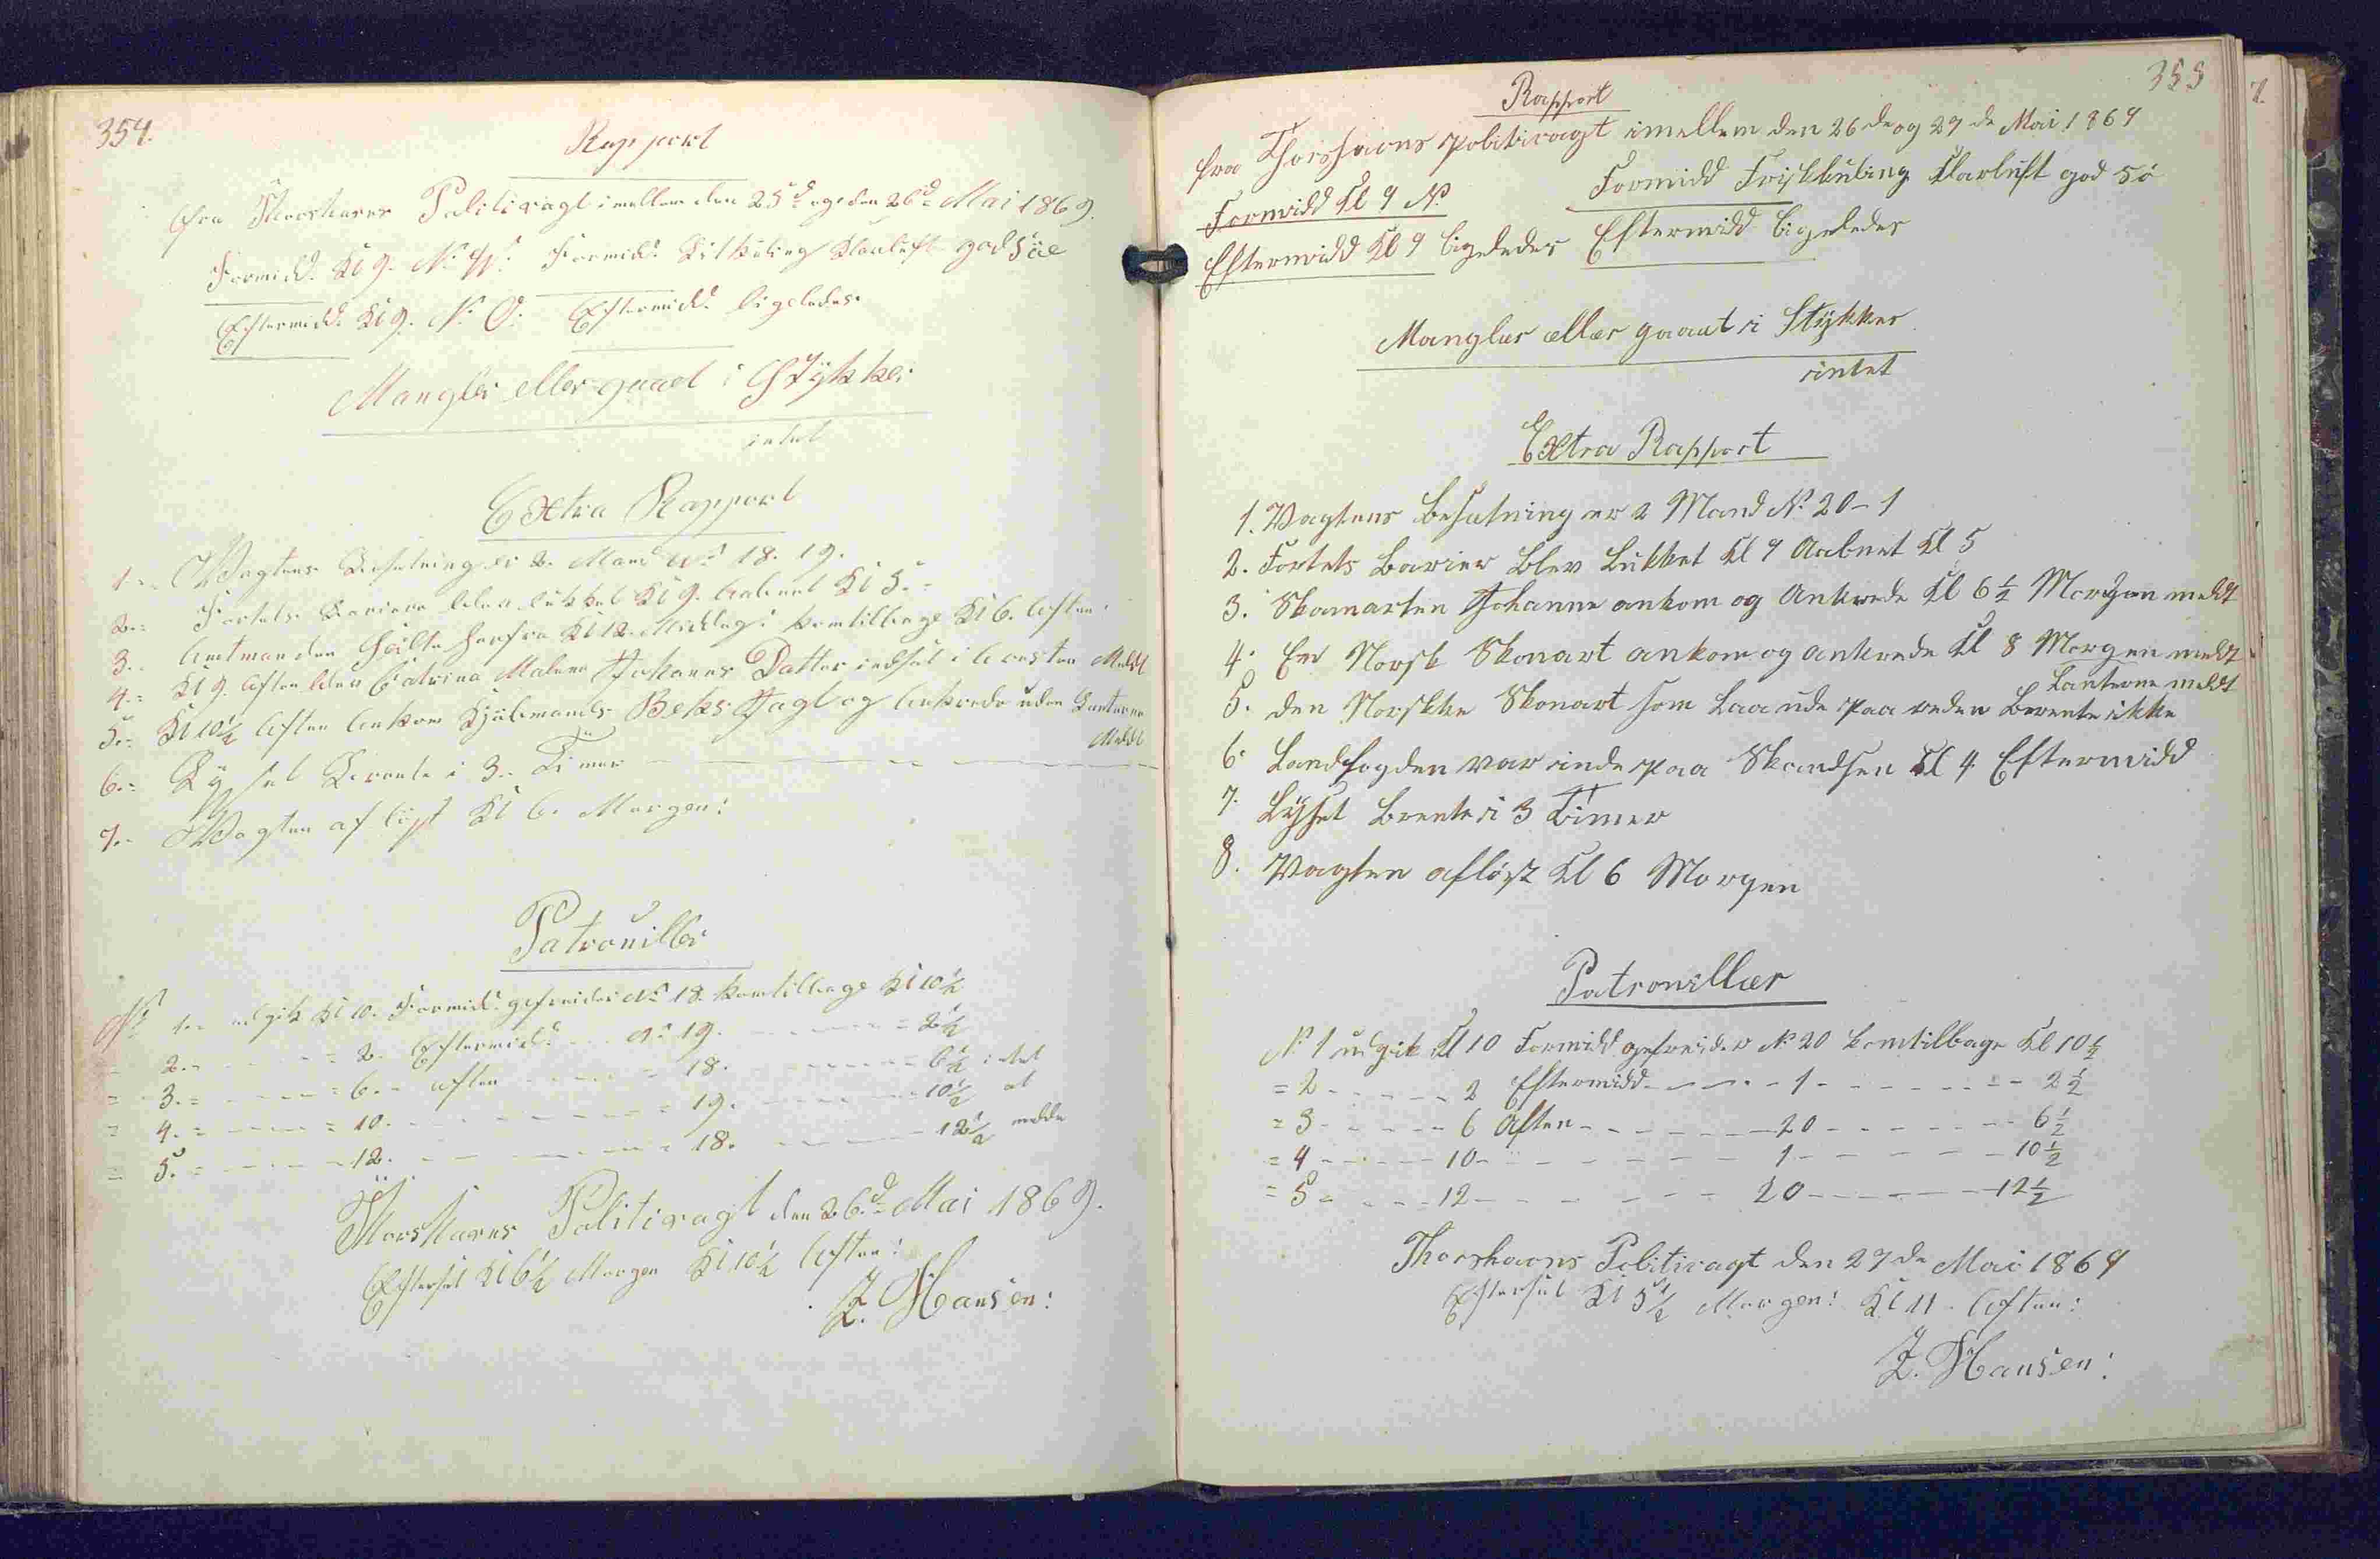 354.
Rapport
fra Thorshavns Politivagt imellem den 25d og den 26d Mai 1869.
Formidd. Kl 9. N. W. Formidd. Kulkuling Klarluft god Söe
Eftermidd. Kl 9. N. O. Eftermidd. ligeledes.
Mangler eller gaaet i Stÿkker
intet
Extra Rapport
1. Vagtens Besetning er 2. Mand No 18. 19.
2. Fortets Bariere blev lukket Kl 9. Aabnet Kl 5.
3. Amtmanden herfra Kl 12. Middag: komtilbage Kl 6. Aften.
4. Kl 9. Aften blev Catrina Malene Johanes Datter indsat i Aresten Meldt
5. Kl 10½ Aften Ankom Kjübmands Beks Jagt og Ankrede uden Lanterne
Meldt
6. Lÿset Brente i 3. Timer
7. Vagten aflöst Kl 6. Morgen:
Patrouiller
No 1. udgik Kl 10. Formid. gefreider No 18. komtilbage Kl 10½
= 2. - - - = 2. Eftermidd. - - No 19. - - - = 2½
= 3. = - - - = 6. - aften - - - = 18. - - - = 6½ intet
= 4. = - - - = 10. - - - = 19. - - - = 10½ at
= 5. = - - - 12. - - - = 18. - - - 12½ melde
Thorshavns Politivagt den 26.d Mai 1869.
Efterset Kl 6½ Morgen Kl 10½ Aften:
Z. Hansen:
355
Rapport
fra Thorshavns politivagt imellem den 26 de og 27 de Mai 1869
Formidd Kl 9 N. Formidd Friskkuling Klarluft god Sö
Eftermidd Kl 9 ligeledes Eftermidd ligeledes
Mangler eller gaaet i Stÿkker
intet
Extra Rapport
1. Vagtens besatning er 2 Mand No 20 - 1
2. Fortets barier blev Lukket Kl 9 Aabnet Kl 5
3. Skonarten Johanne ankom og Ankrede Kl 6½ Morgen meldt
4. En Norsk Skonart ankom og ankrede Kl 8 Morgen meldt
Lanterne meldt
5. den Norskke Skonart som Laa ude paa reden Brente ikke
6. Landfogden var inde paa Skandsen Kl 4 Eftermidd
7. Lÿset brente i 3 Timer
8. Vagten aflöst Kl 6 Morgen
Patrouiller
No 1 udgik Kl 10 Formidd gefreider No 20 komtilbage Kl 10½
= 2 - - - 2 Eftermidd - - - 1 - - - 2½
= 3 - - - 6 Aften - - - 20 - - - 6½
= 4 - - - 10 - - - 1 - - - 10½
= 5 - - - 12 - - - 20 - - - 12½
Thorshavns Politivagt den 27 de Mai 1869
Efterset Kl 5½ Morgen: Kl 11 - Aften:
Z. Hansen:
7.